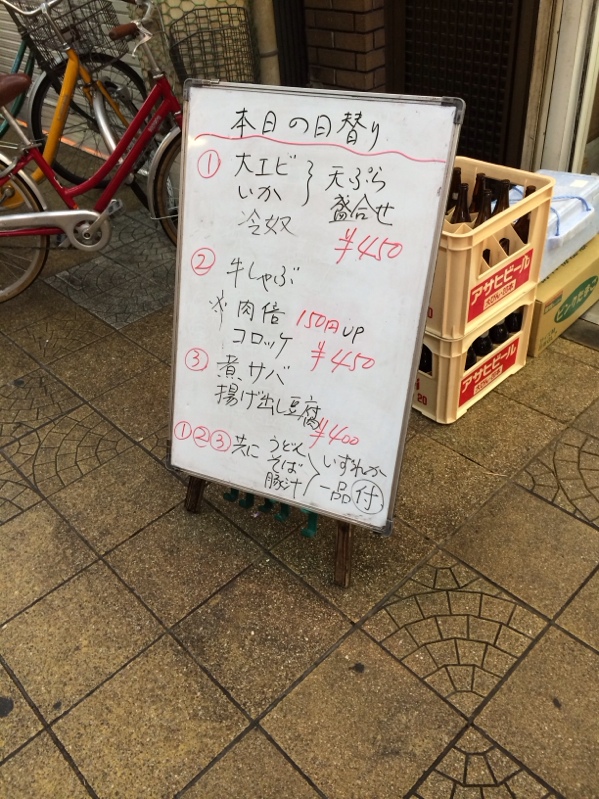 本日の日替り
① 大エビ
いか
天ぷら
盛合せ
冷奴
¥450
② 牛しゃぶ
※肉倍 150円UP
コロッケ ¥450
③ 煮サバ
揚げ出し豆腐
¥400
①②③共に うどん
そば
豚汁
いずれか
一品付
アサヒビール
アサヒビール
20